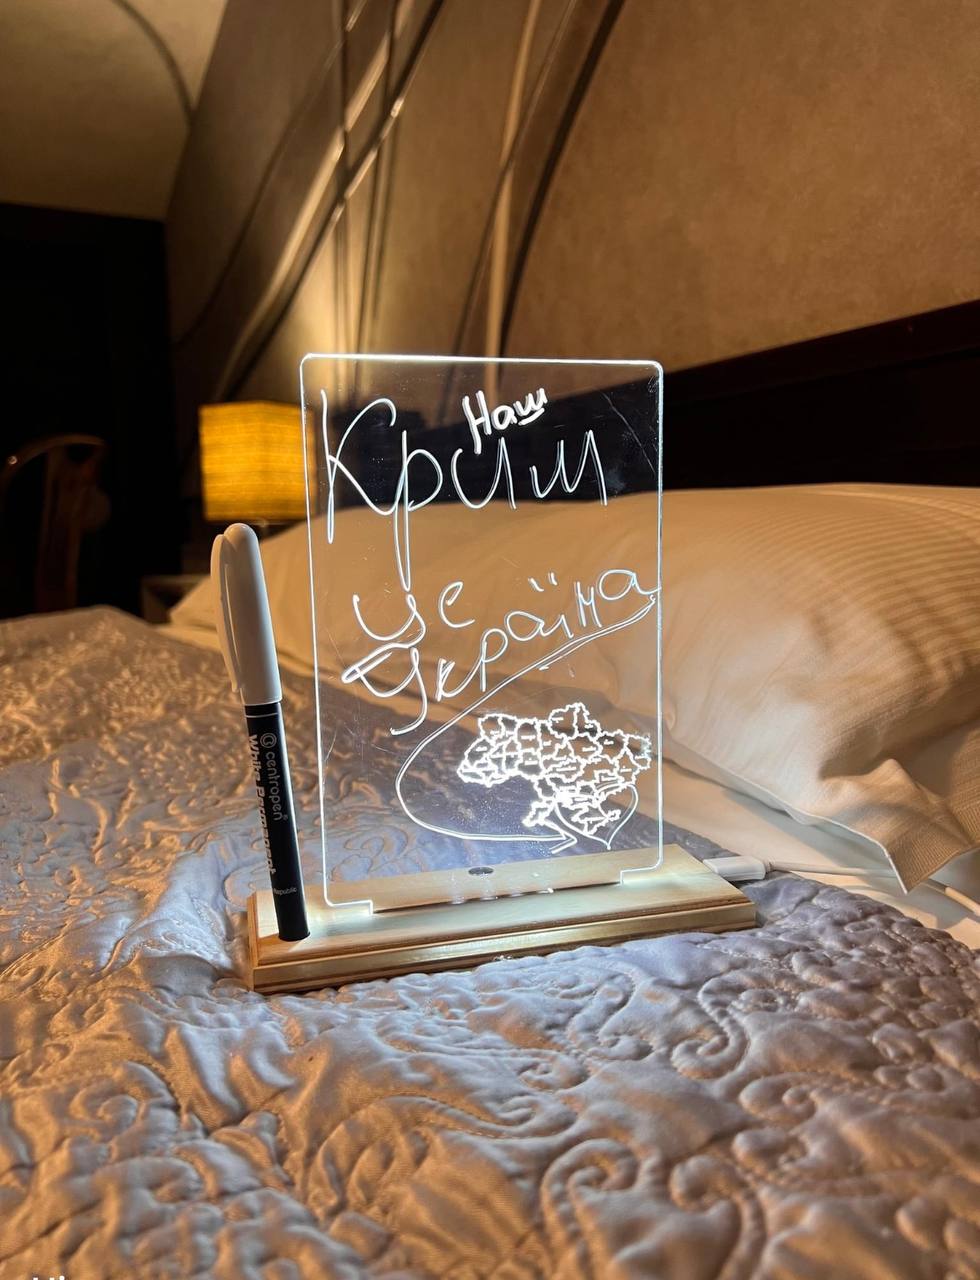 Наш
Крим
це
Україна
centropen
White Permanent
Republic